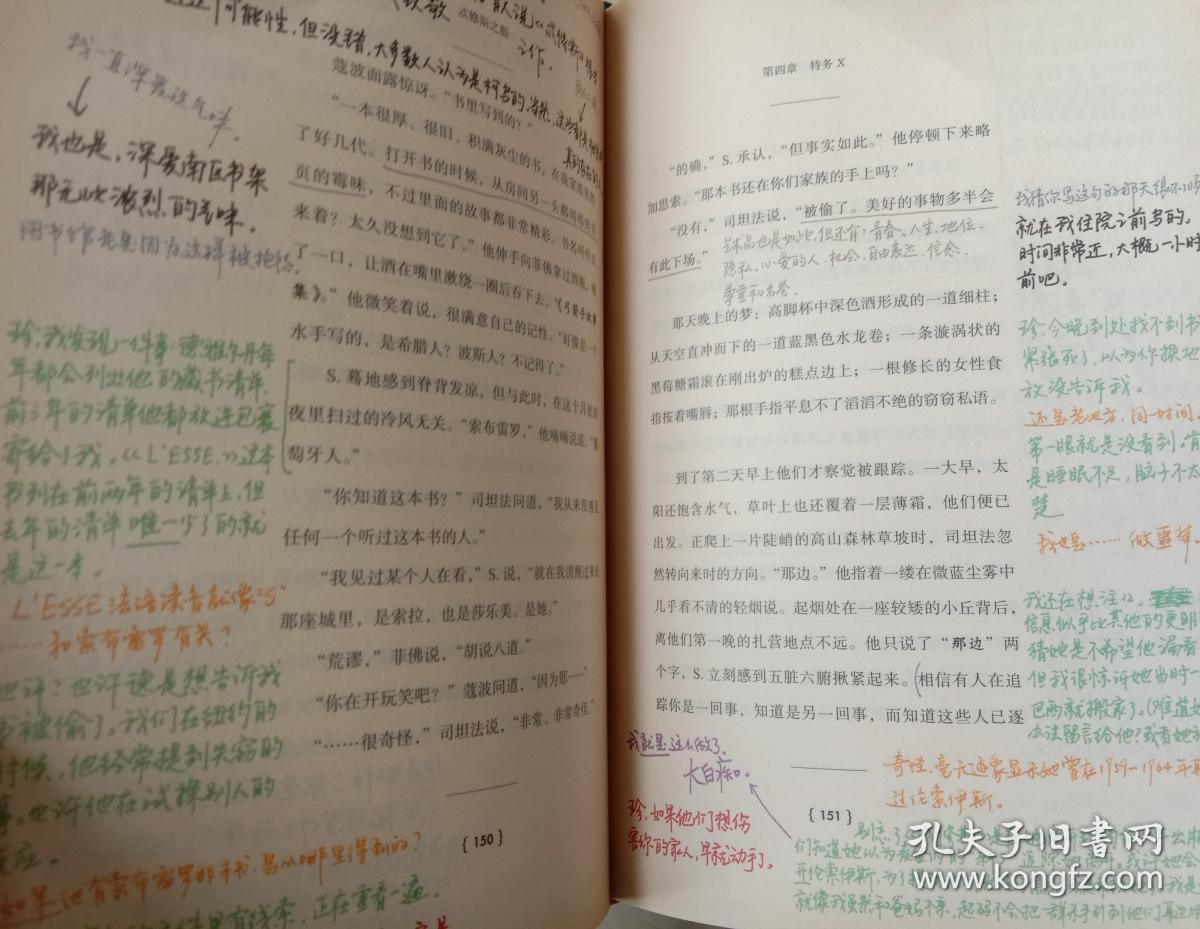 忒修斯之船
可能性，但没错，大多数人认为是柯岛的，当然，这
之作。
我一直深爱这气味，
我也是，深爱南区书架
那元此浓烈的气味。
图书馆老是因为这样被抱怨
珍，我发现一件事：德雅尔丹每
年都会列出他的藏书清单，
前三年的清单他都放进包裹
寄给了我。《L'ESSE.》这本
书列在前两年的清单上，但
去年的清单唯一少了的就
是这一本。
L'ESSE法语读音就像"S"
……和索布雷罗有关？
也许？也许德是想告诉我
书被偷了。我们在纽约的
时候，他经常提到失窃的
事。也许他在试探别人的
反应。
如果他有索布雷罗那本书，是从哪里得到的？
里有线索，正在重看一遍。
蔻波面露惊讶。“书里写到的？”
“一本很厚、很旧、积满灰尘的书，在我家族里传
了好几代。打开书的时候，从房间另一头都闻得到书
页的霉味，不过里面的故事都非常精彩。书名叫什么
来着？太久没想到它了。”他伸手向菲佛拿过酒瓶，喝
了一口，让酒在嘴里漱绕一圈后吞下去。“《弓箭手故事
集》。”他微笑着说，很满意自己的记性。“好像是一个
水手写的，是希腊人？波斯人？不记得了。”
S.蓦地感到脊背发凉，但与此时，在这十月底的
夜里扫过的冷风无关。“索布雷罗，”他喃喃说道，“葡
萄牙人。”
“你知道这本书？”司坦法问道，“我从来没遇见
任何一个听过这本书的人。”
“我见过某个人在看，”S.说，“就在我清醒过来的
那座城里，是索拉，也是莎乐美。是她。”
“荒谬，”菲佛说，“胡说八道。”
“你在开玩笑吧？”蔻波问道，“因为那……”
“……很奇怪，”司坦法说，“非常、非常奇怪。”
{ 150 }
第四章 特务 X
“的确，”S.承认，“但事实如此。”他停顿下来略
加思索。“那本书还在你们家族的手上吗？”
“没有，”司坦法说，“被偷了。美好的事物多半会
有此下场。”
艺术品也是如此，但还有：青春、人生、地位、
隐私、心爱的人、机会、自由表达、信念、
尊重和名誉。
那天晚上的梦：高脚杯中深色酒形成的一道细柱；
从天空直冲而下的一道蓝黑色水龙卷；一条漩涡状的
黑莓糖霜滚在刚出炉的糕点边上；一根修长的女性食
指按着嘴唇；那根手指平息不了滔滔不绝的窃窃私语。
到了第二天早上他们才察觉被跟踪。一大早，太
阳还饱含水气，草叶上也还覆着一层薄霜，他们便已
出发。正爬上一片陡峭的高山森林草坡时，司坦法忽
然转向来时的方向。“那边。”他指着一缕在微蓝尘雾中
几乎看不清的轻烟说。起烟处在一座较矮的小丘背后，
离他们第一晚的扎营地点不远。他只说了“那边”两
个字，S.立刻感到五脏六腑揪紧起来。相信有人在追
踪你是一回事，知道是另一回事，而知道这些人已逐
{ 151 }
我猜你写这句的那天很不顺
就在我住院之前写的。
时间非常近，大概一小时
前吧。
珍：今晚到处找不到书
紧张死了，以为你换地
放没告诉我。
还是老地方，同一时间，
第一眼就是没看到。肯
是睡眠不足，脑子不太
楚
我也是……做噩梦。
我还在想，注12，
信息似乎比其他的更明
猜她是不希望他漏看
但我很惊讶她当时一
巴西就搬家了。（难道她
办法留言给他？或者她
奇怪，毫无迹象显示她曾在1959-1964年
过伦索伊斯。
我就是这么做了，
大白痴。
珍，如果他们想伤
害你的家人，早就动手了。
就像我虽然和爸妈不亲，起码不会把一群杀手引到他们
孔夫子旧书网
www.kongfz.com